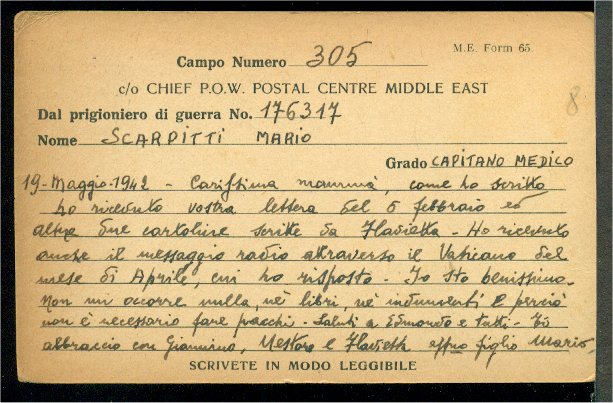 Campo Numero 305
M.E. Form 65.
c/o CHIEF P.O.W. POSTAL CENTRE MIDDLE EAST
8
Dal prigioniero di guerra No. 176317
Nome SCARPITTI MARIO
Grado CAPITANO MEDICO
19-Maggio-1942 - Carissima mammà, come ho scritto
ho ricevuto vostra lettera del 5 febbraio ed
altre due cartoline scritte da Flavietta - Ho ricevuto
anche il messaggio radio attraverso il Vaticano del
mese di Aprile, cui ho risposto - Io sto benissimo.
Non mi occorre nulla, nè libri, nè indumenti e perciò
non è necessario fare pacchi - Saluti a Edmondo e tutti -
abbraccio con Giannino, Nestore e Flavietta figlio Mario -
SCRIVETE IN MODO LEGGIBILE